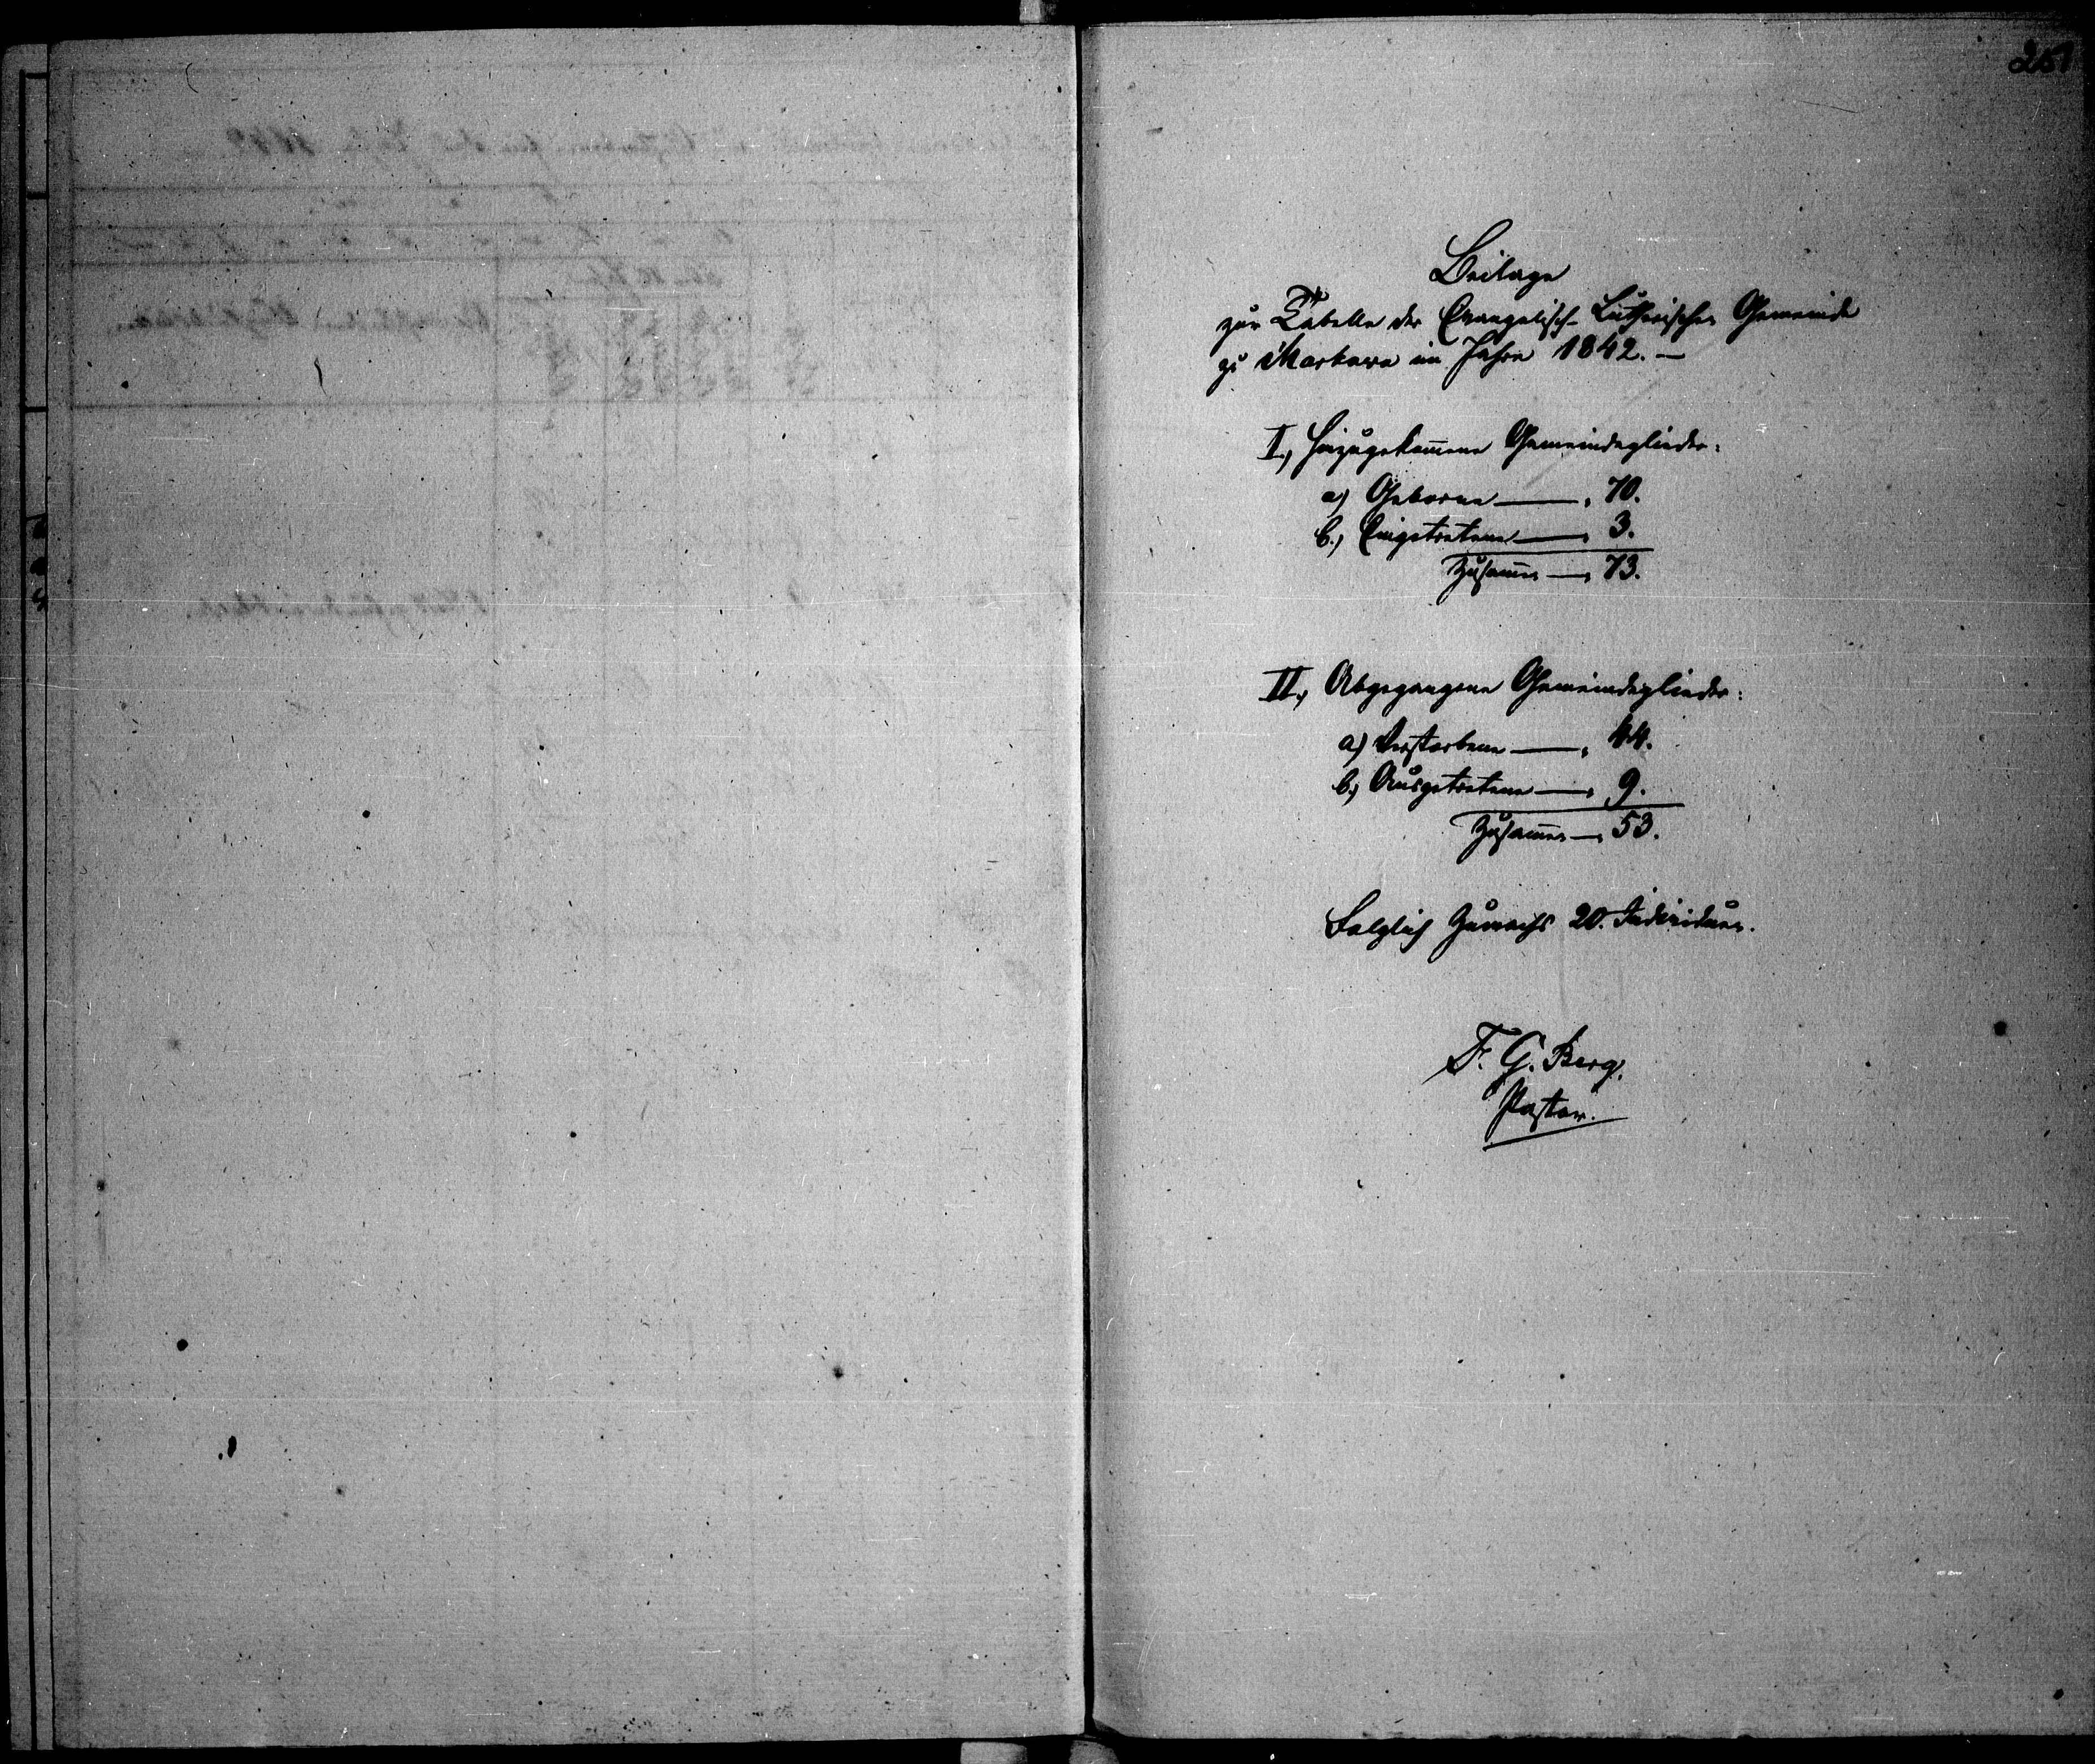 251
Beilage
zur Tabelle der Evangelisch-Lutherischen Gemeinde
zu Markara im Jahre 1842. —
I., Hinzugekom̄ene Gemeindeglieder:
a) Geborne —— , 70.
b.) Eingetretene —— , 3.
Zusam̄en — , 73.
II., Abgegangene Gemeindeglieder:
a) Verstorbene —— , 44.
b.) Ausgetretene —— , 9.
Zusam̄en — , 53.
Folglich Zuwachs 20. Individuen.
F. G. Berg.
Pastor.